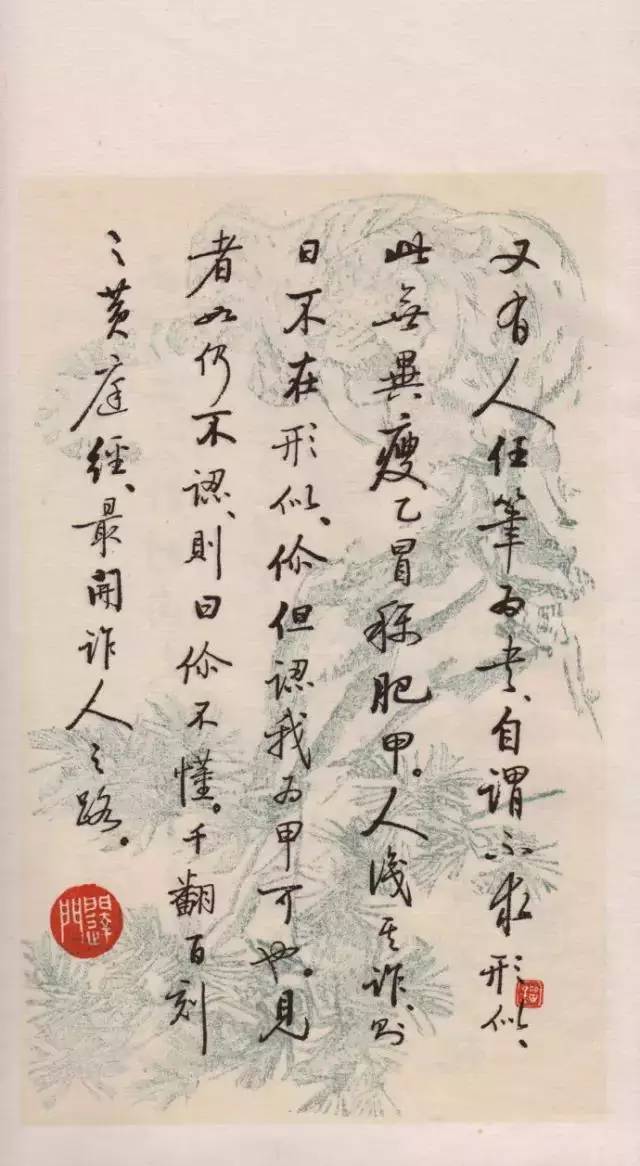 又有人任筆为书、自謂不求形似、
此無異瘦乙冒称肥甲。人識其诈、则
曰不在形似、你但認我为甲可也。見
者如仍不認、則曰你不懂。千翻百刻
之黄庭經、最開诈人之路。